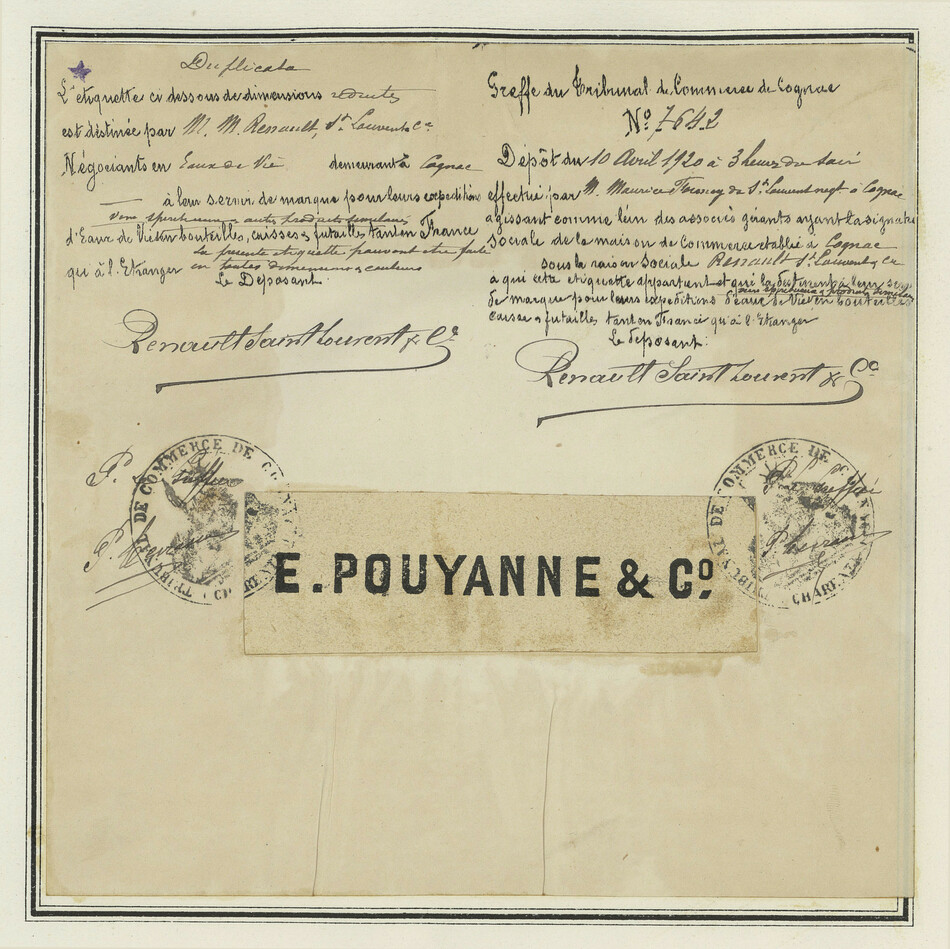 Duplicata
L'étiquette ci dessous de dimensions réduites
est destinée par M. M. Renault, St Laurent & Cie
Négociants en Eaux de Vie demeurant à Cognac
à leur servir de marque pour leurs expéditions
vins spiritueux & autres produits similaires
d'Eaux de Vie en bouteilles, caisses & futailles tant en France
la présente étiquette pouvant être faite
qu'à l'Etranger en toutes dimensions & couleurs
Le Déposant
Renault Saint Laurent & Cie
Greffe du Tribunal de Commerce de Cognac
No 7642
Dépôt du 10 Avril 1920 à 3 heures du soir
effectué par M. Maurice de St Laurent negt à Cognac
agissant comme l'un des associés gérants ayant la signature
sociale de la maison de Commerce établie à Cognac
sous la raison sociale Renault St Laurent & Cie
à qui cette étiquette appartient et qui la destinent à leur
vins spiritueux & produits similaires
de marque pour leurs expéditions d'eaux de Vie en bouteilles
caisse & futailles tant en France qu'à l'Etranger
Le déposant:
Renault Saint Laurent & Co
TRIBUNAL DE COMMERCE DE COGNAC
CHARENTE
TRIBUNAL DE COMMERCE DE COGNAC
CHARENTE
E. POUYANNE & Co.